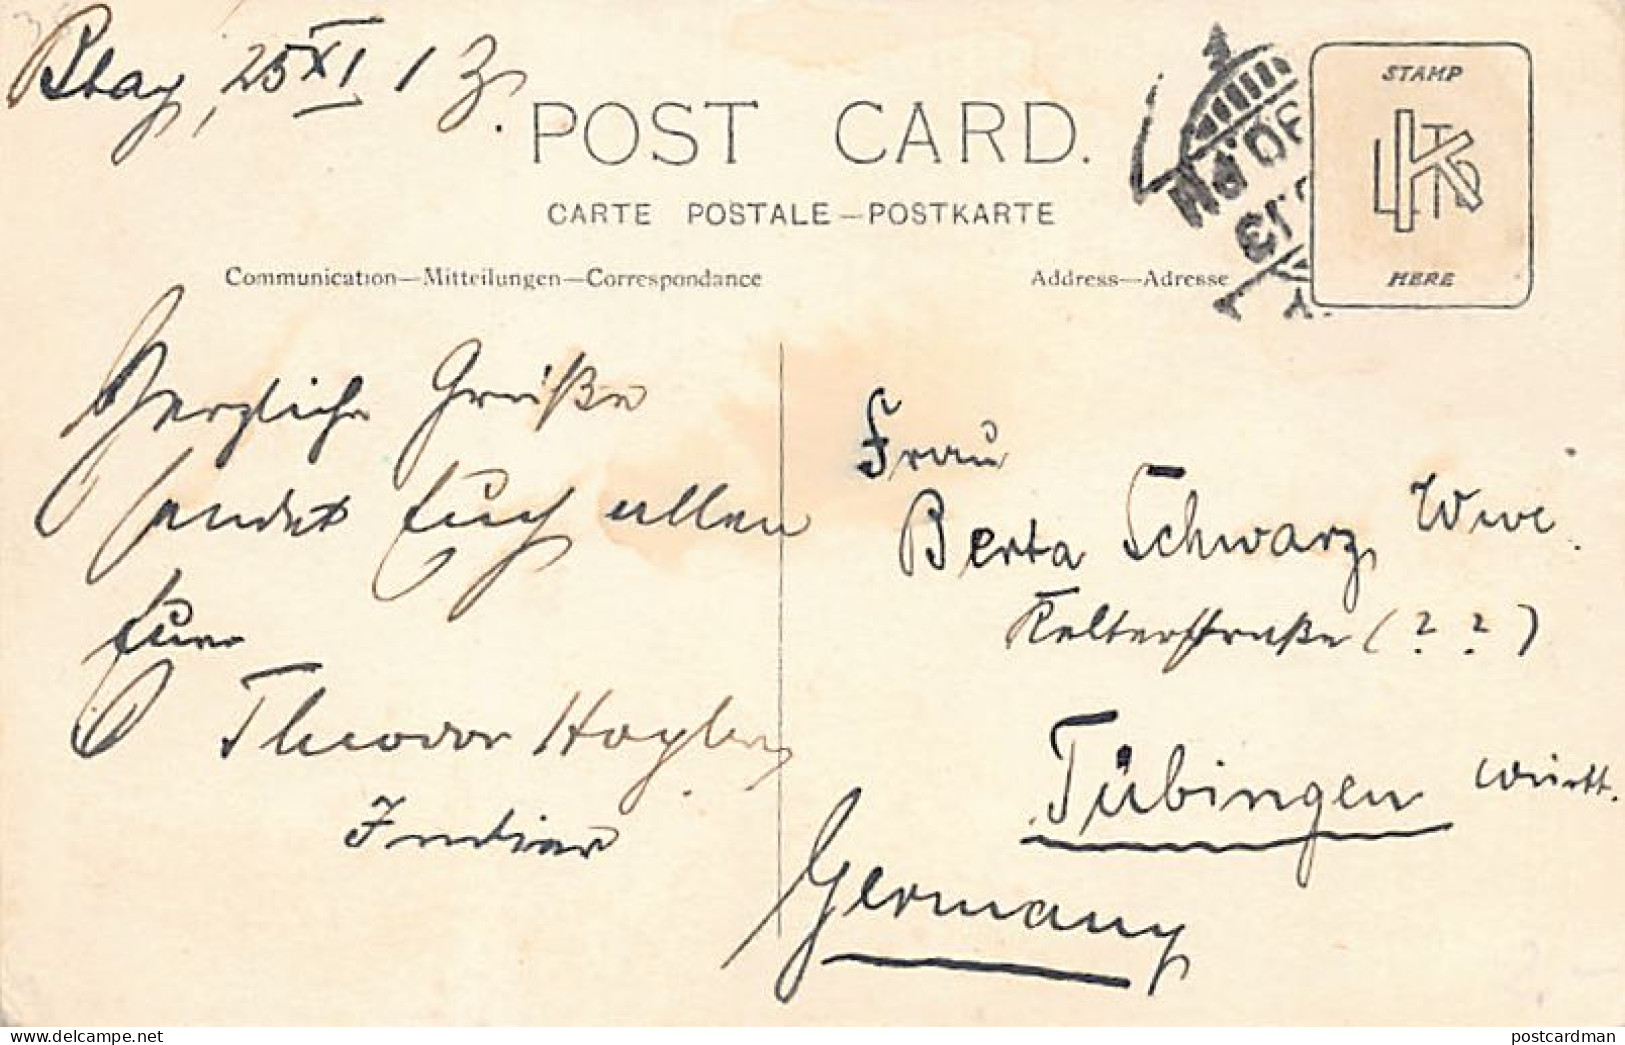 25 XI 13.
POST CARD.
CARTE POSTALE—POSTKARTE
Communication—Mitteilungen—Correspondance
Address—Adresse
STAMP
LTD
K
HERE
30 PM
13
Herzliche Grüße
sendet Euch allen
Euer
Theodor
Frau
Berta Schwarz Wwe.
Kelterstraße (? ?)
Tübingen Württ.
Germany
postcardman